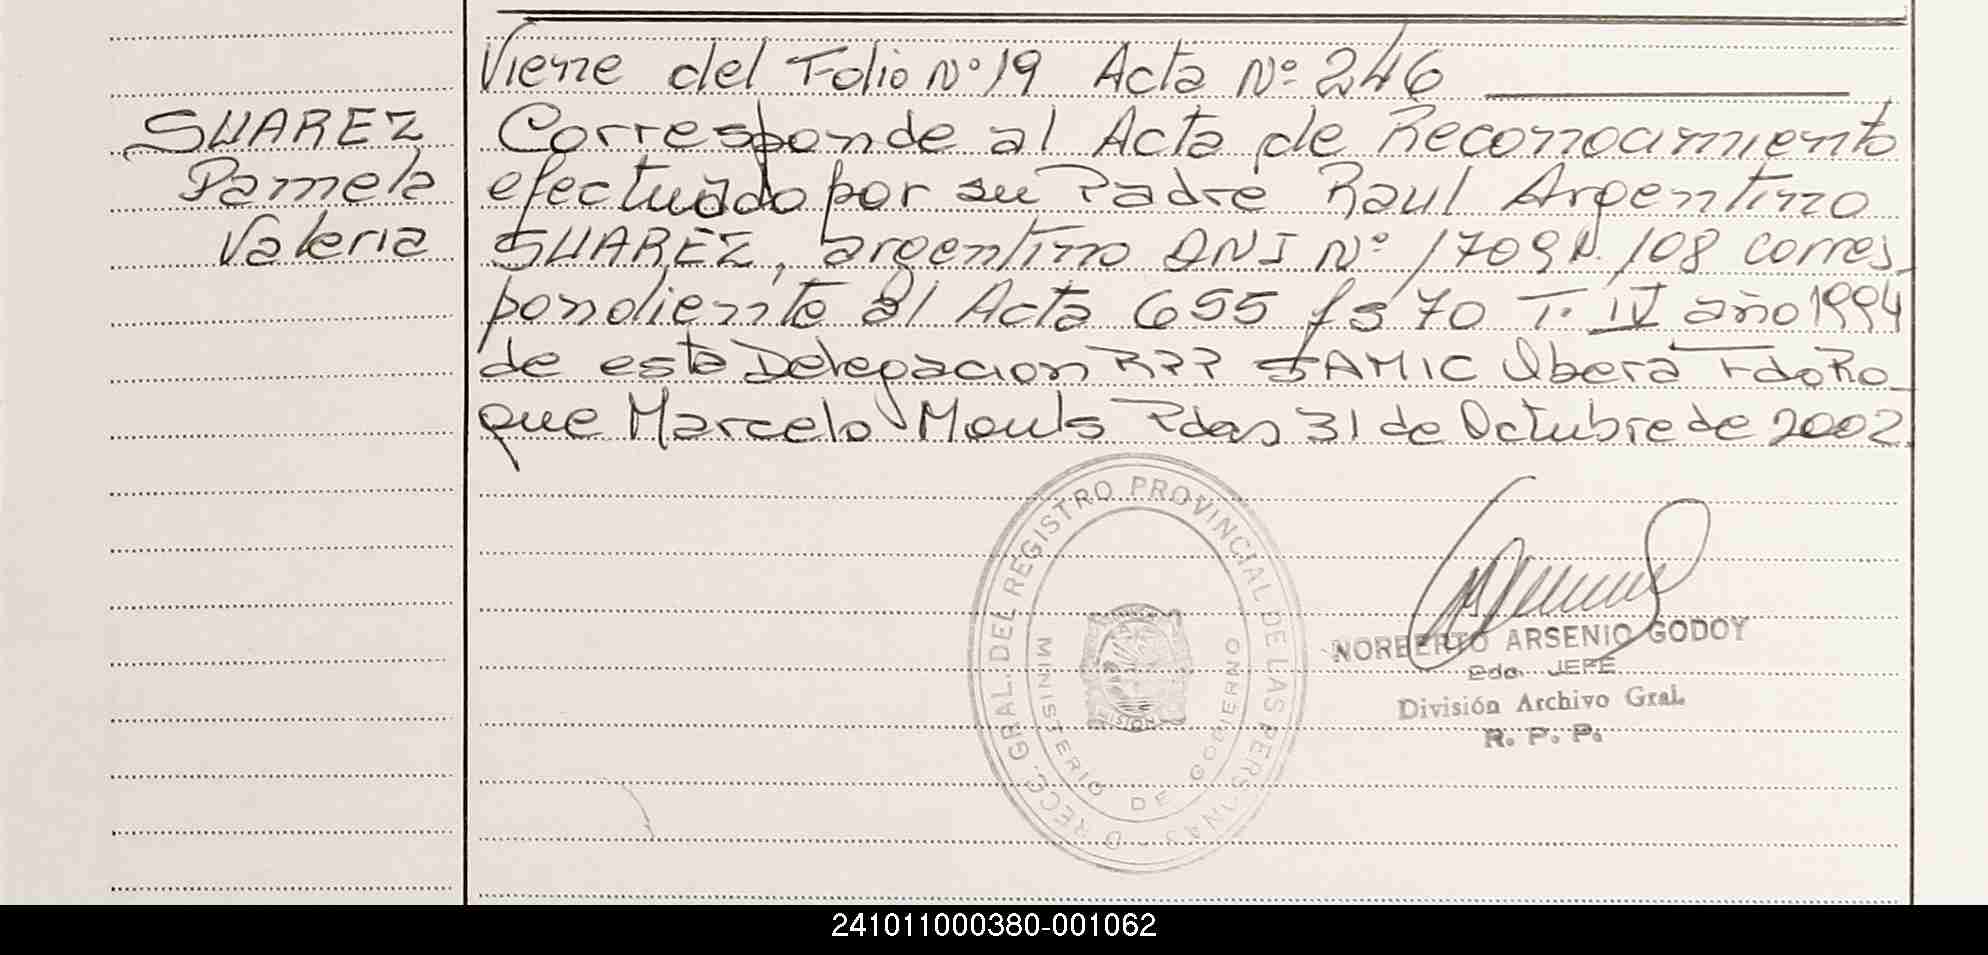 Viene del Folio Nº 19 Acta Nº 246
SUAREZ
Pamela
Valeria
Corresponde al Acta de Reconocimiento
efectuado por su Padre Raul Argentino
SUAREZ, argentino DNI Nº 108 corres
pondiente al Acta 655 fs 70 T. IV año 1994
de esta Delegacion RPP SAMIC Obera Fdo Ro
que Marcelo Pdas 31 de Octubre de 2002.
DIRECC. GRAL. DEL REGISTRO PROVINCIAL DE LAS PERSONAS
MINISTERIO DE GOBIERNO
NORBERTO ARSENIO GODOY
2do. JEFE
División Archivo Gral.
R. P. P.
241011000380-001062